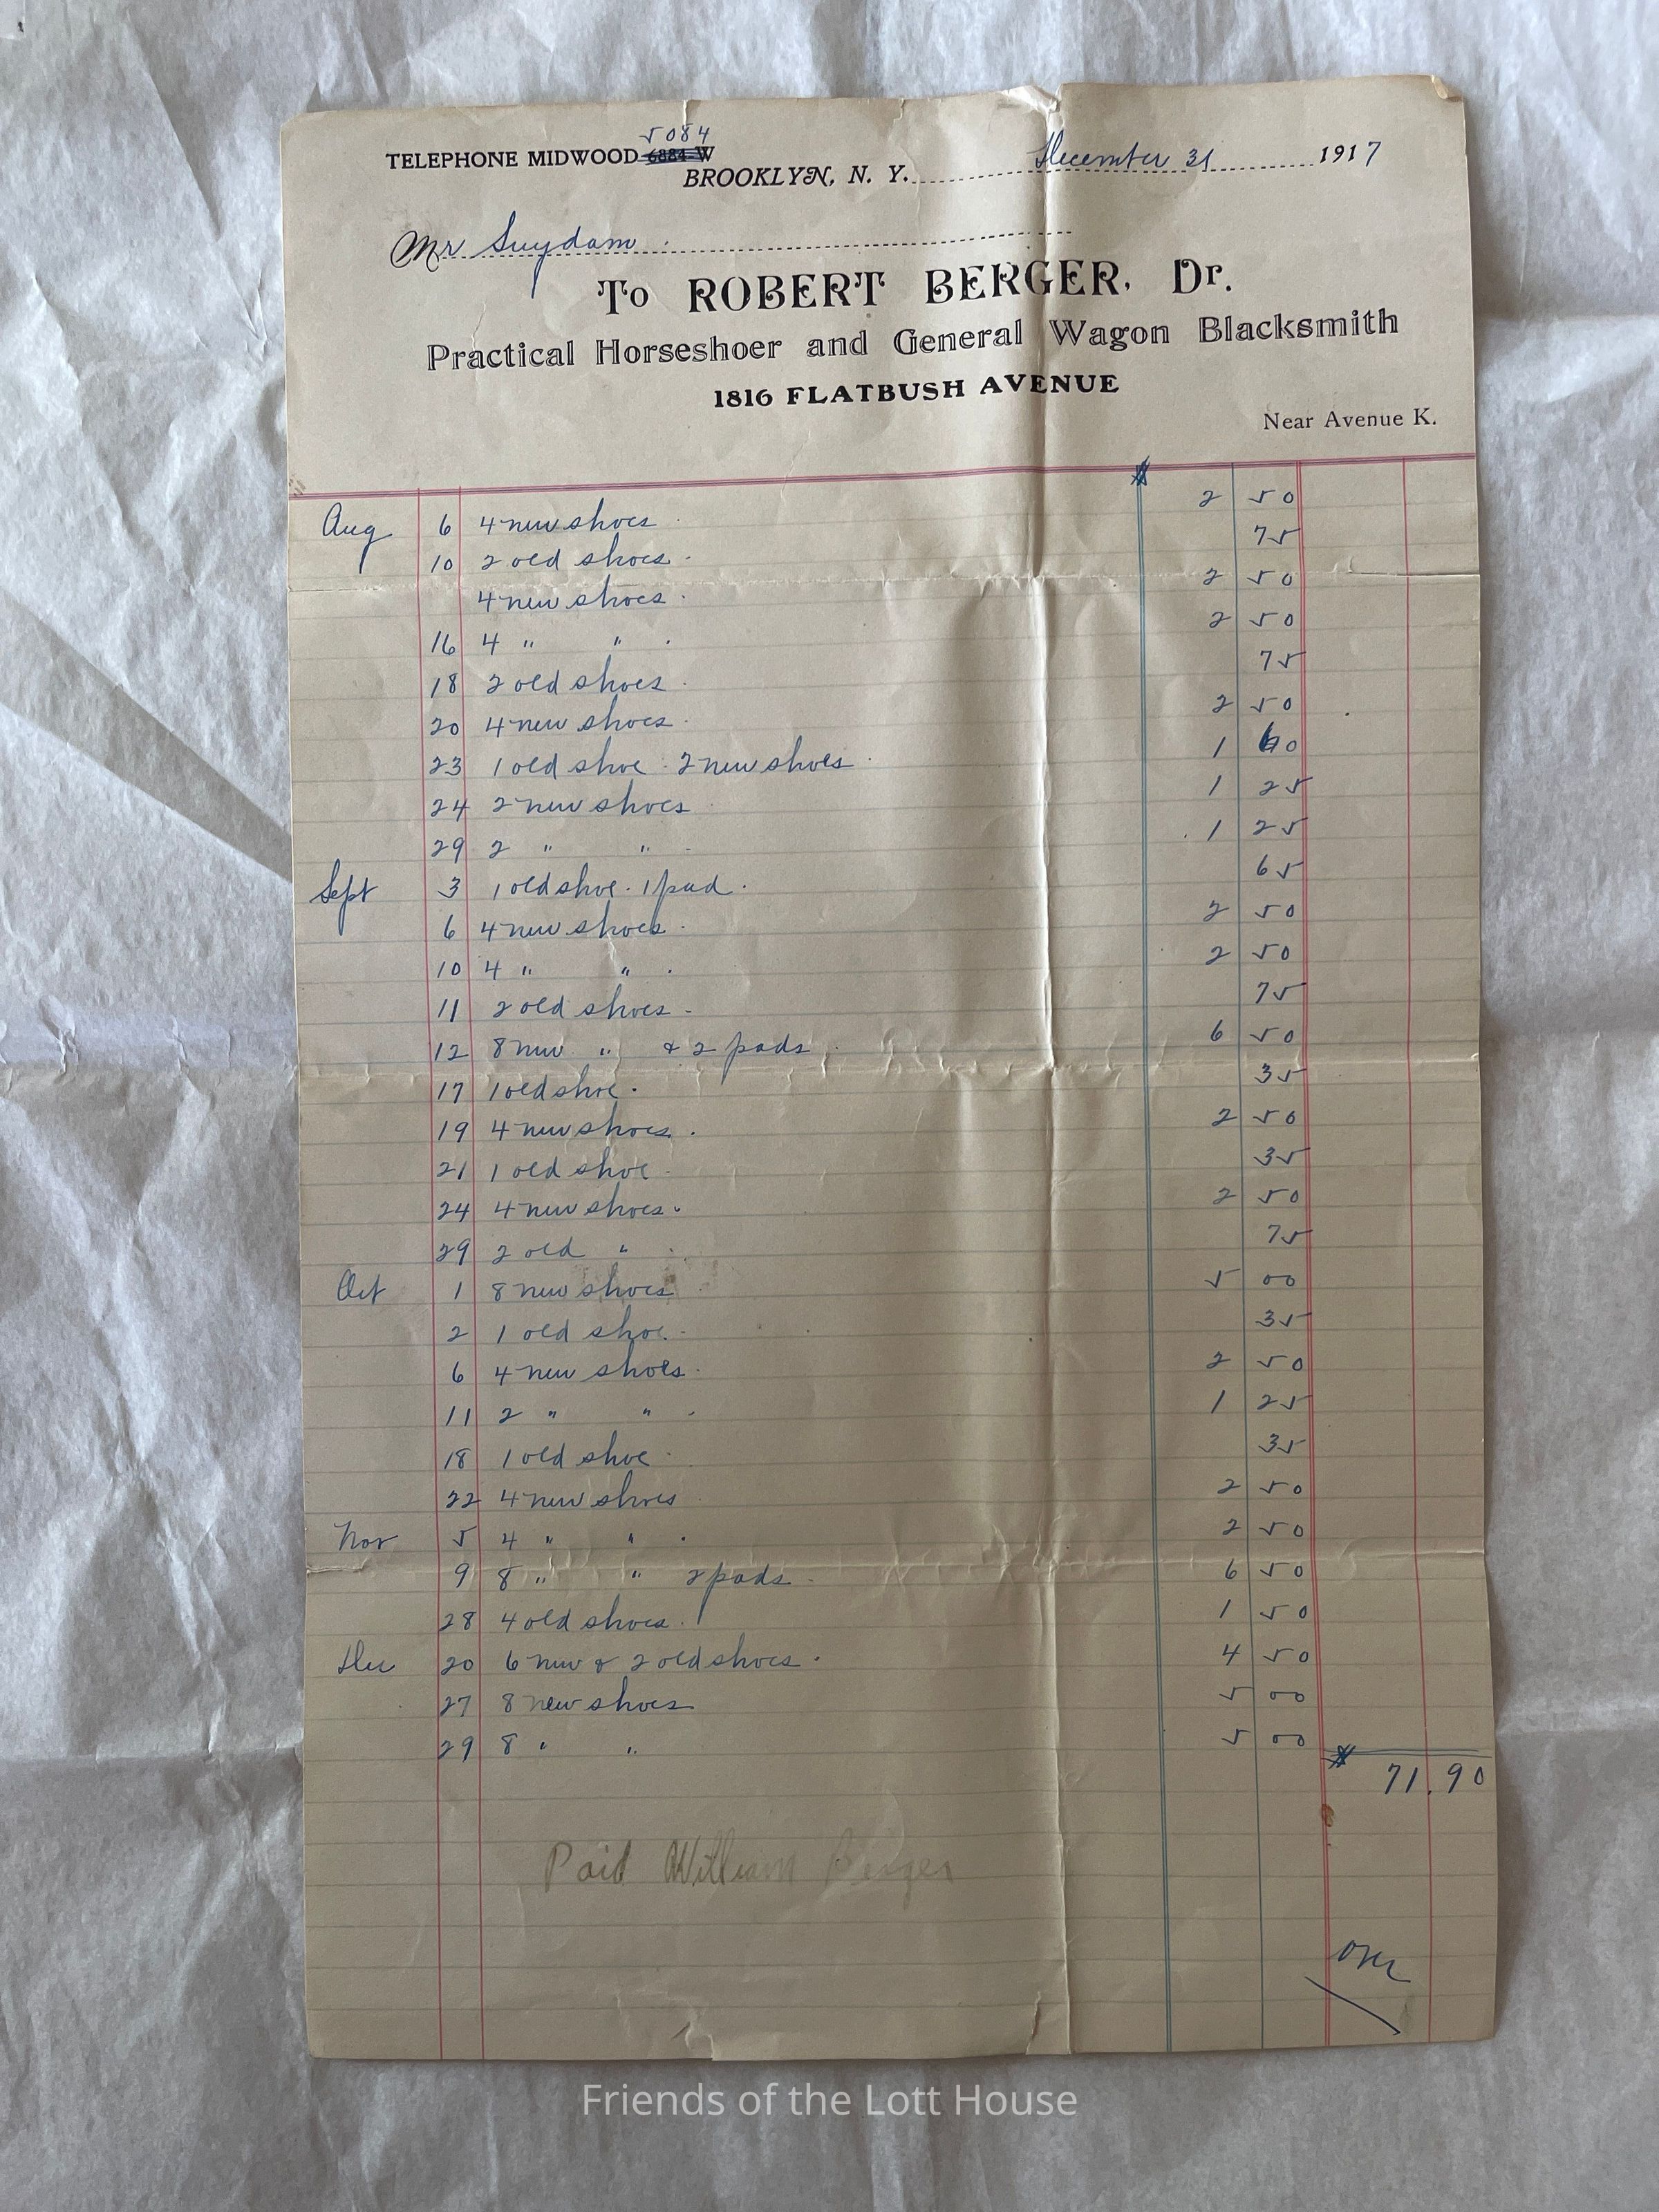 5084
TELEPHONE MIDWOOD 6884-W
BROOKLYN, N. Y. December 31 1917
Mr Suydam
To ROBERT BERGER, Dr.
Practical Horseshoer and General Wagon Blacksmith
1816 FLATBUSH AVENUE
Near Avenue K.
$
Aug 6 4 new shoes 2 50
10 2 old shoes 75
4 new shoes 2 50
16 4 " " 2 50
18 2 old shoes 75
20 4 new shoes 2 50
23 1 old shoe 2 new shoes 1 60
24 2 new shoes 1 25
29 2 " " 1 25
Sept 3 1 old shoe 1 pad 65
6 4 new shoes 2 50
10 4 " " 2 50
11 2 old shoes 75
12 8 new " & 2 pads 6 50
17 1 old shoe 35
19 4 new shoes 2 50
21 1 old shoe 35
24 4 new shoes 2 50
29 2 old " 75
Oct 1 8 new shoes 5 00
2 1 old shoe 35
6 4 new shoes 2 50
11 2 " " 1 25
18 1 old shoe 35
22 4 new shoes 2 50
Nov 5 4 " " 2 50
9 8 " " 2 pads 6 50
28 4 old shoes 1 50
Dec 20 6 new & 2 old shoes 4 50
27 8 new shoes 5 00
29 8 " " 5 00
$ 71.90
Paid William Berger
over
Friends of the Lott House